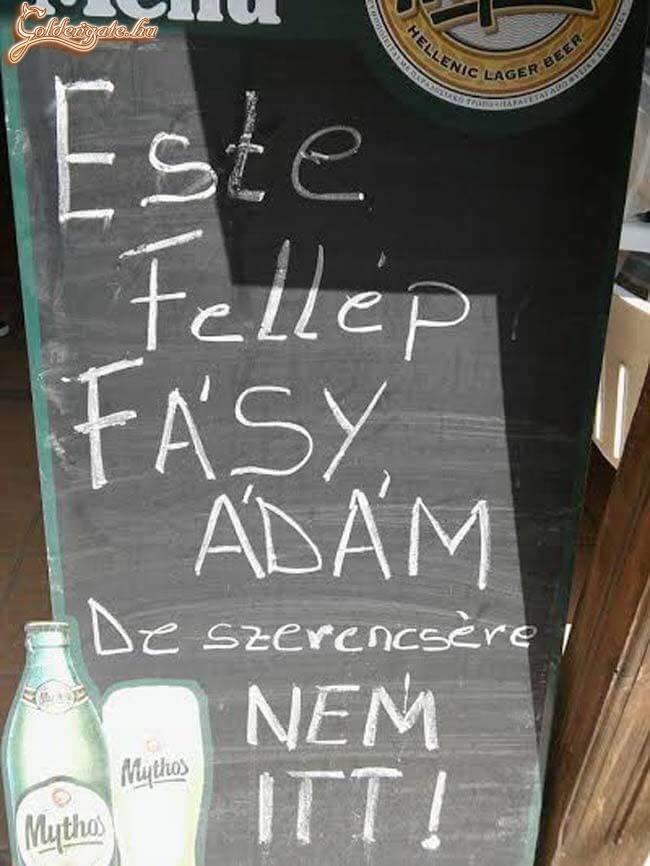 Menu
Goldengate.hu
HELLENIC LAGER BEER
Este
fellép
FÁSY
ÁDÁM
De szerencsére
NEM
ITT!
Mythos
Mythos